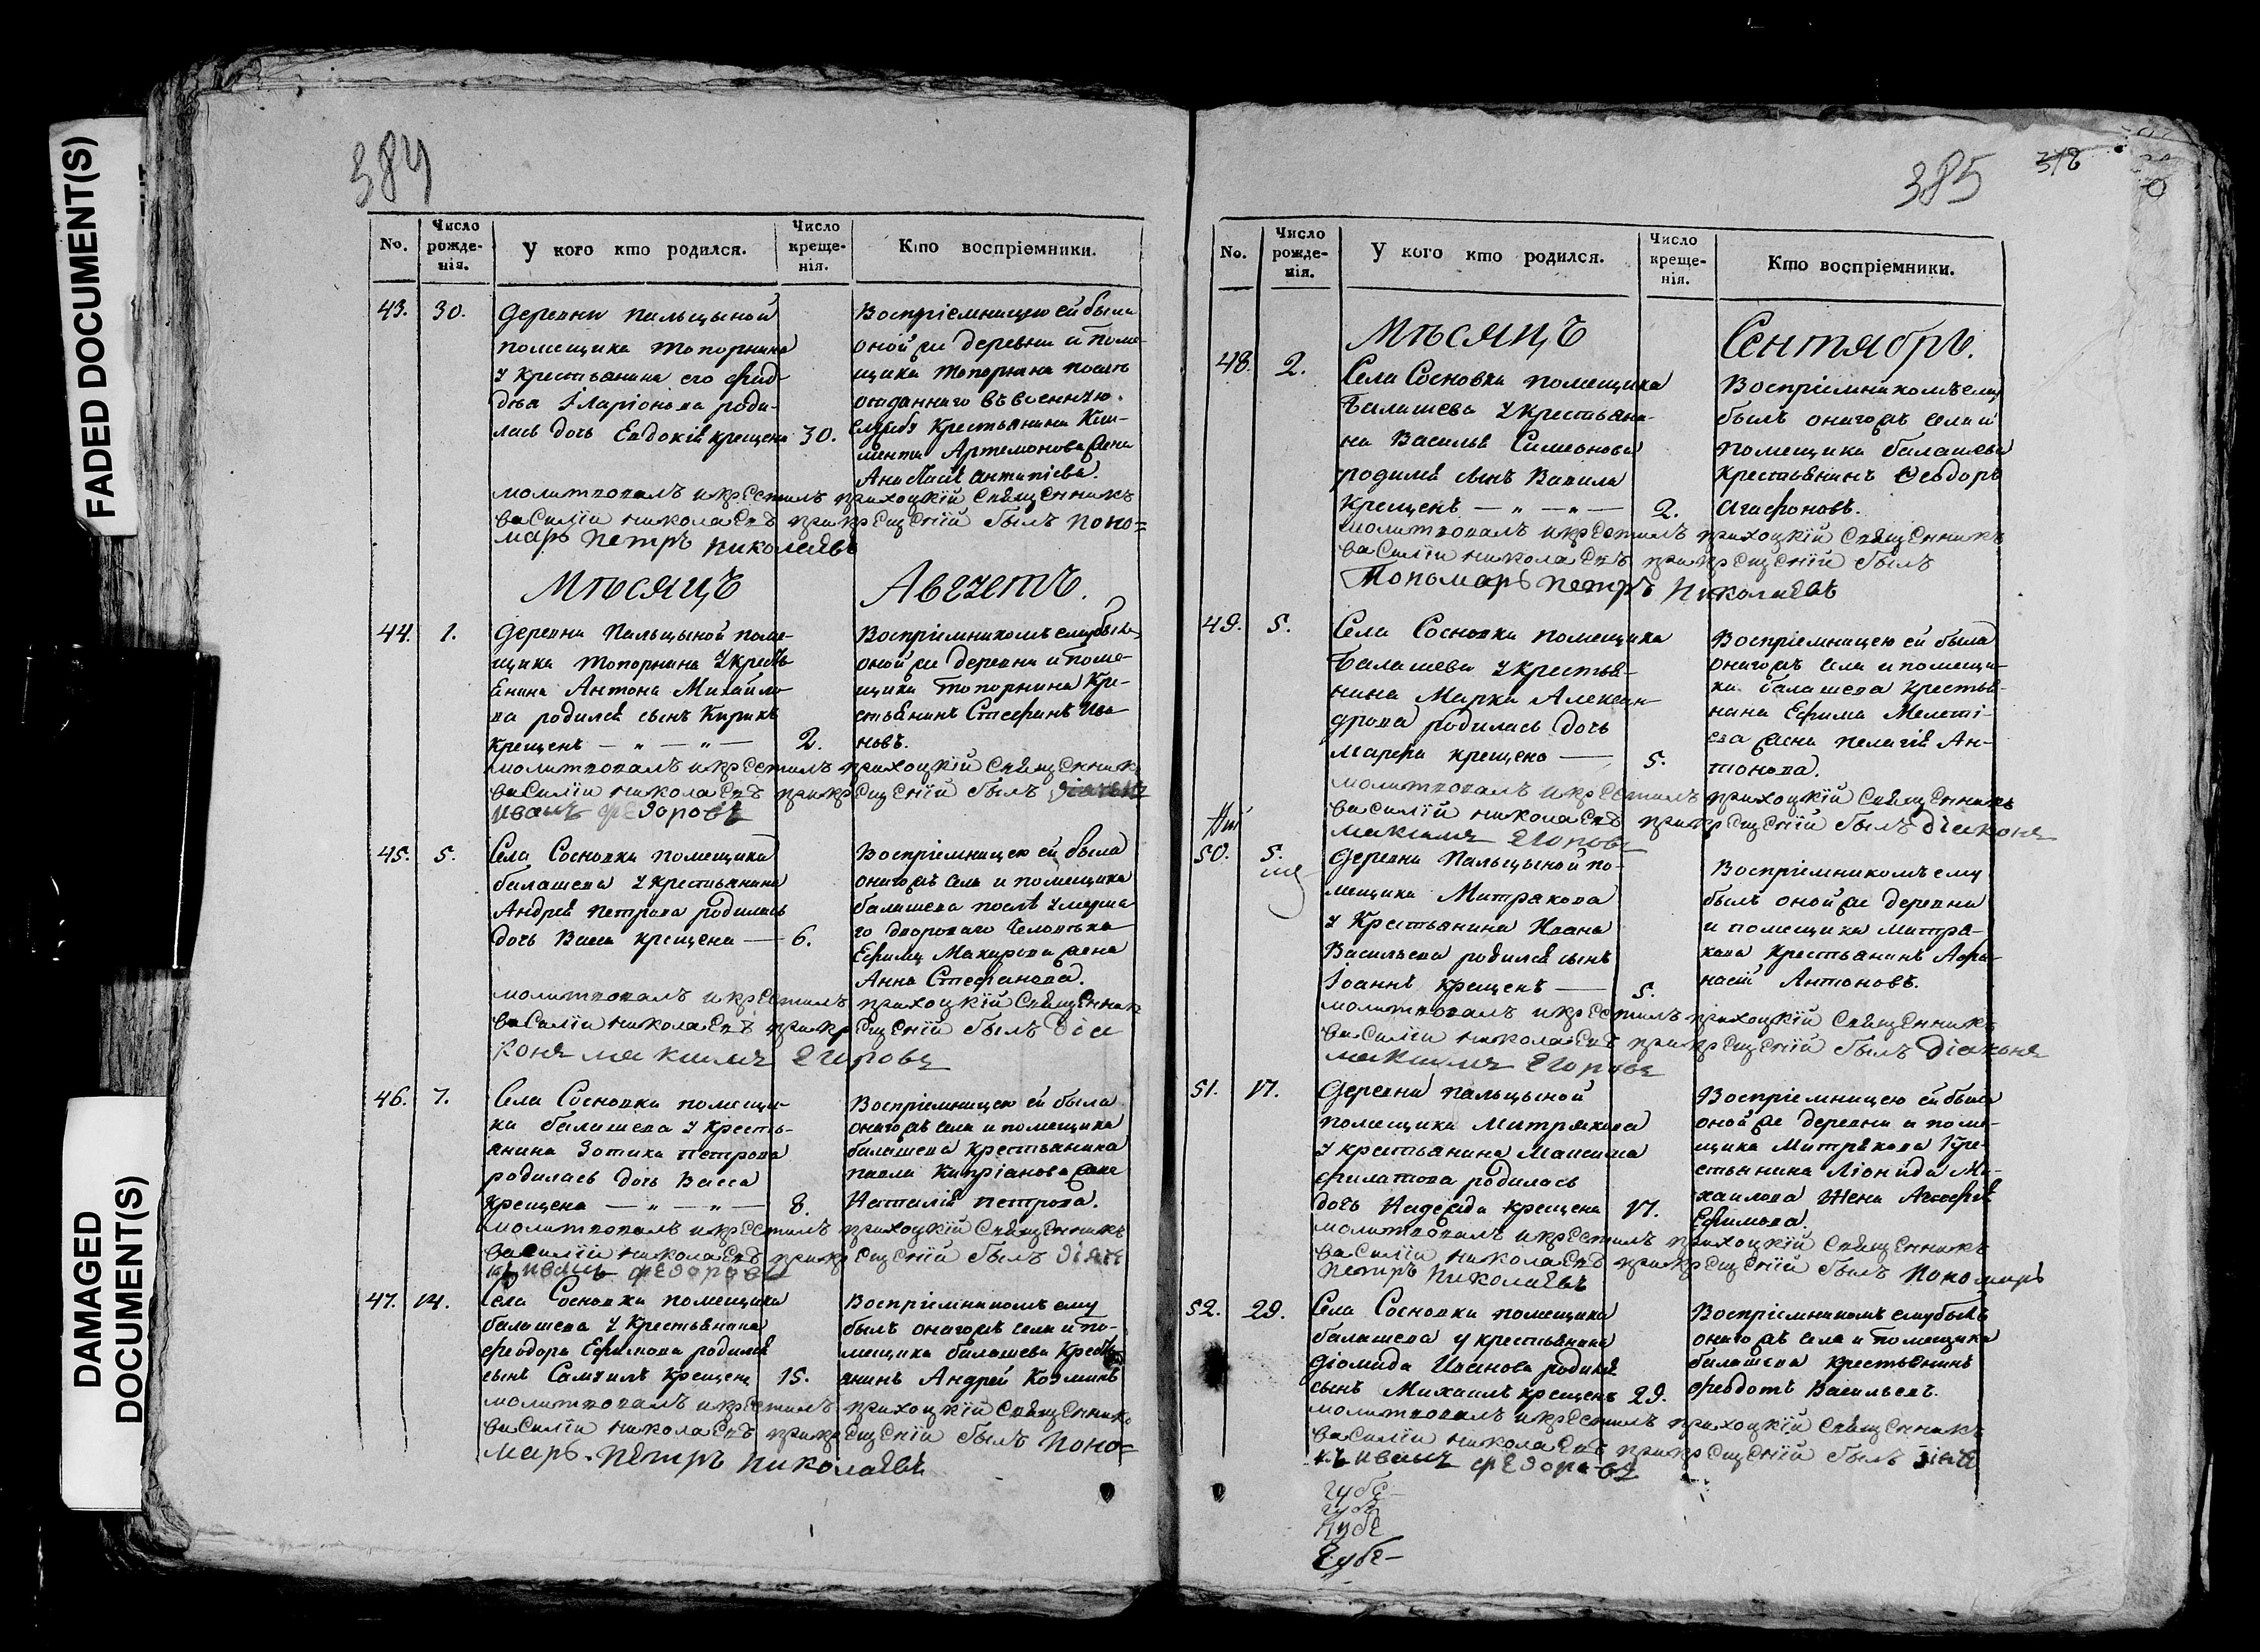 FADED DOCUMENT(S)
DAMAGED
DOCUMENT(S)
384
No.
Число рожде- нія.
У кого кто родился.
Число креще- нія.
Кто воспріемники.
43. 30.
Деревни Пальцыной
помещика Топорнина
у крестьянина его
Иларіонова роди-
лась дочь Евдокія крещена 30.
Воспріемницею ей была
оной же деревни и поме-
щика Топорнина послѣ
отданнаго въ военную
службу крестьянина Кли-
мента Артемонова жена
Антипіева.
молитвовалъ и крестилъ приходцкій священникъ
василіи николаевъ при крещеніи былъ поно=
марь петръ николаевъ
Мѣсяцъ Августъ.
44. 1.
Деревни Пальцыной поме-
щика Топорнина у кресть
янина Антона Михайло
ва родился сынъ Кирикъ
крещенъ — „ — „ — 2.
Воспріемникомъ ему былъ
оной же деревни и поме-
щика Топорнина кре-
стьянинъ Стефанъ Ива
новъ.
молитвовалъ и крестилъ приходцкій священникъ
василіи николаевъ при крещеніи былъ
иванъ федоровъ
45. 5.
Села Сосновки помещика
балашева у крестьянина
Андрея Петрова родилась
дочь Васса крещена — 6.
Воспріемницею ей была
онагожъ села и помещика
балашева послѣ умерша
го двороваго человѣка
Ефима Макарова жена
Анна Стефанова.
молитвовалъ и крестилъ приходцкій священникъ
василіи николаевъ при крещеніи былъ діа
конъ максимъ егоровъ
46. 7.
Села Сосновки помещи-
ка балашева у кресть-
янина Зотика петрова
родилась дочь Васса
крещена — „ — „ — 8.
Воспріемницею ей была
онагожъ села и помещика
балашева крестьянина
павла Кипріанова жена
Наталія петрова.
молитвовалъ и крестилъ приходцкій священникъ
василіи николаевъ при крещеніи былъ діяче
къ иванъ федоровъ
47. 14.
Села Сосновки помещика
балашева у крестьянина
феодора Ефимова родился
сынъ Самуилъ крещенъ 15.
Воспріемникомъ ему
былъ онагожъ села и по-
мещика балашева кресть
янинъ Андрей Козминъ
молитвовалъ и крестилъ приходцкій священникъ
василіи николаевъ при крещеніи былъ поно=
марь. петръ николаевъ
385
No.
Число рожде- нія.
У кого кто родился.
Число креще- нія.
Кто воспріемники.
Мѣсяцъ Сентябрь.
48. 2.
Села Сосновки помещика
Балашева у крестьяни-
на Василья Симеонова
родился сынъ Вавила
крещенъ — „ — „ — 2.
Воспріемникомъ ему
былъ онагожъ села и
помещика балашева
крестьянинъ Феодоръ
Агафоновъ.
молитвовалъ и крестилъ приходцкій священникъ
василіи николаевъ при крещеніи былъ
Пономарь петръ николаевъ
49. 5.
Села Сосновки помещика
Балашева у крестья-
нина Марка Алексан
дрова родилась дочь
Марфа крещена — 5.
Воспріемницею ей была
онагожъ села и помещи-
ка балашева крестья-
нина Ефима Мелеті-
ева жена пелагія Ан-
тонова.
молитвовалъ и крестилъ приходцкій священникъ
василіи николаевъ при крещеніи былъ діаконъ
максимъ егоровъ
50. 5.
Деревни Пальцыной по-
мещика Митракова
у крестьянина Ивана
Васильева родился сынъ
Іоаннъ крещенъ — 5.
Воспріемникомъ ему
былъ оной же деревни
и помещика митра-
кова крестьянинъ Афа-
насій Антоновъ.
молитвовалъ и крестилъ приходцкій священникъ
василіи николаевъ при крещеніи былъ діаконъ
максимъ егоровъ
51. 17.
Деревни пальцыной
помещика Митракова
у крестьянина Максима
филатова родилась
дочь Надежда крещена 17.
Воспріемницею ей была
оной же деревни и поме-
щика Митракова кре-
стьянина Ми-
хаилова жена
Ефимова.
молитвовалъ и крестилъ приходцкій священникъ
василіи николаевъ при крещеніи былъ пономарь
петръ николаевъ
52. 29.
Села Сосновки помещика
балашева у крестьянина
Діомида Иванова родился
сынъ Михаилъ крещенъ 29.
Воспріемникомъ ему былъ
онагожъ села и помещика
балашева крестьянинъ
феодотъ Васильевъ.
молитвовалъ и крестилъ приходцкій священникъ
василіи николаевъ при крещеніи былъ діяче
къ иванъ федоровъ
губе-
губе
губе
Губе-